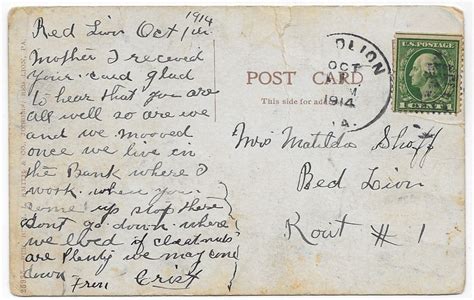 Red Lion Oct 1/ 1914
Mother I receved
your card glad
to hear that you are
all well so are we
and we mooved
once we live in
the Bank where I
work. when you
come up stop there
dont go down where
we lived if chestnuts
are plenty we may come
down From Crist
POST CARD
This side for address only.
DLION
OCT
M
1914
A.
U.S. POSTAGE
1 CENT 1
Mrs Matilda Shoff
Red Lion
Rout # 1